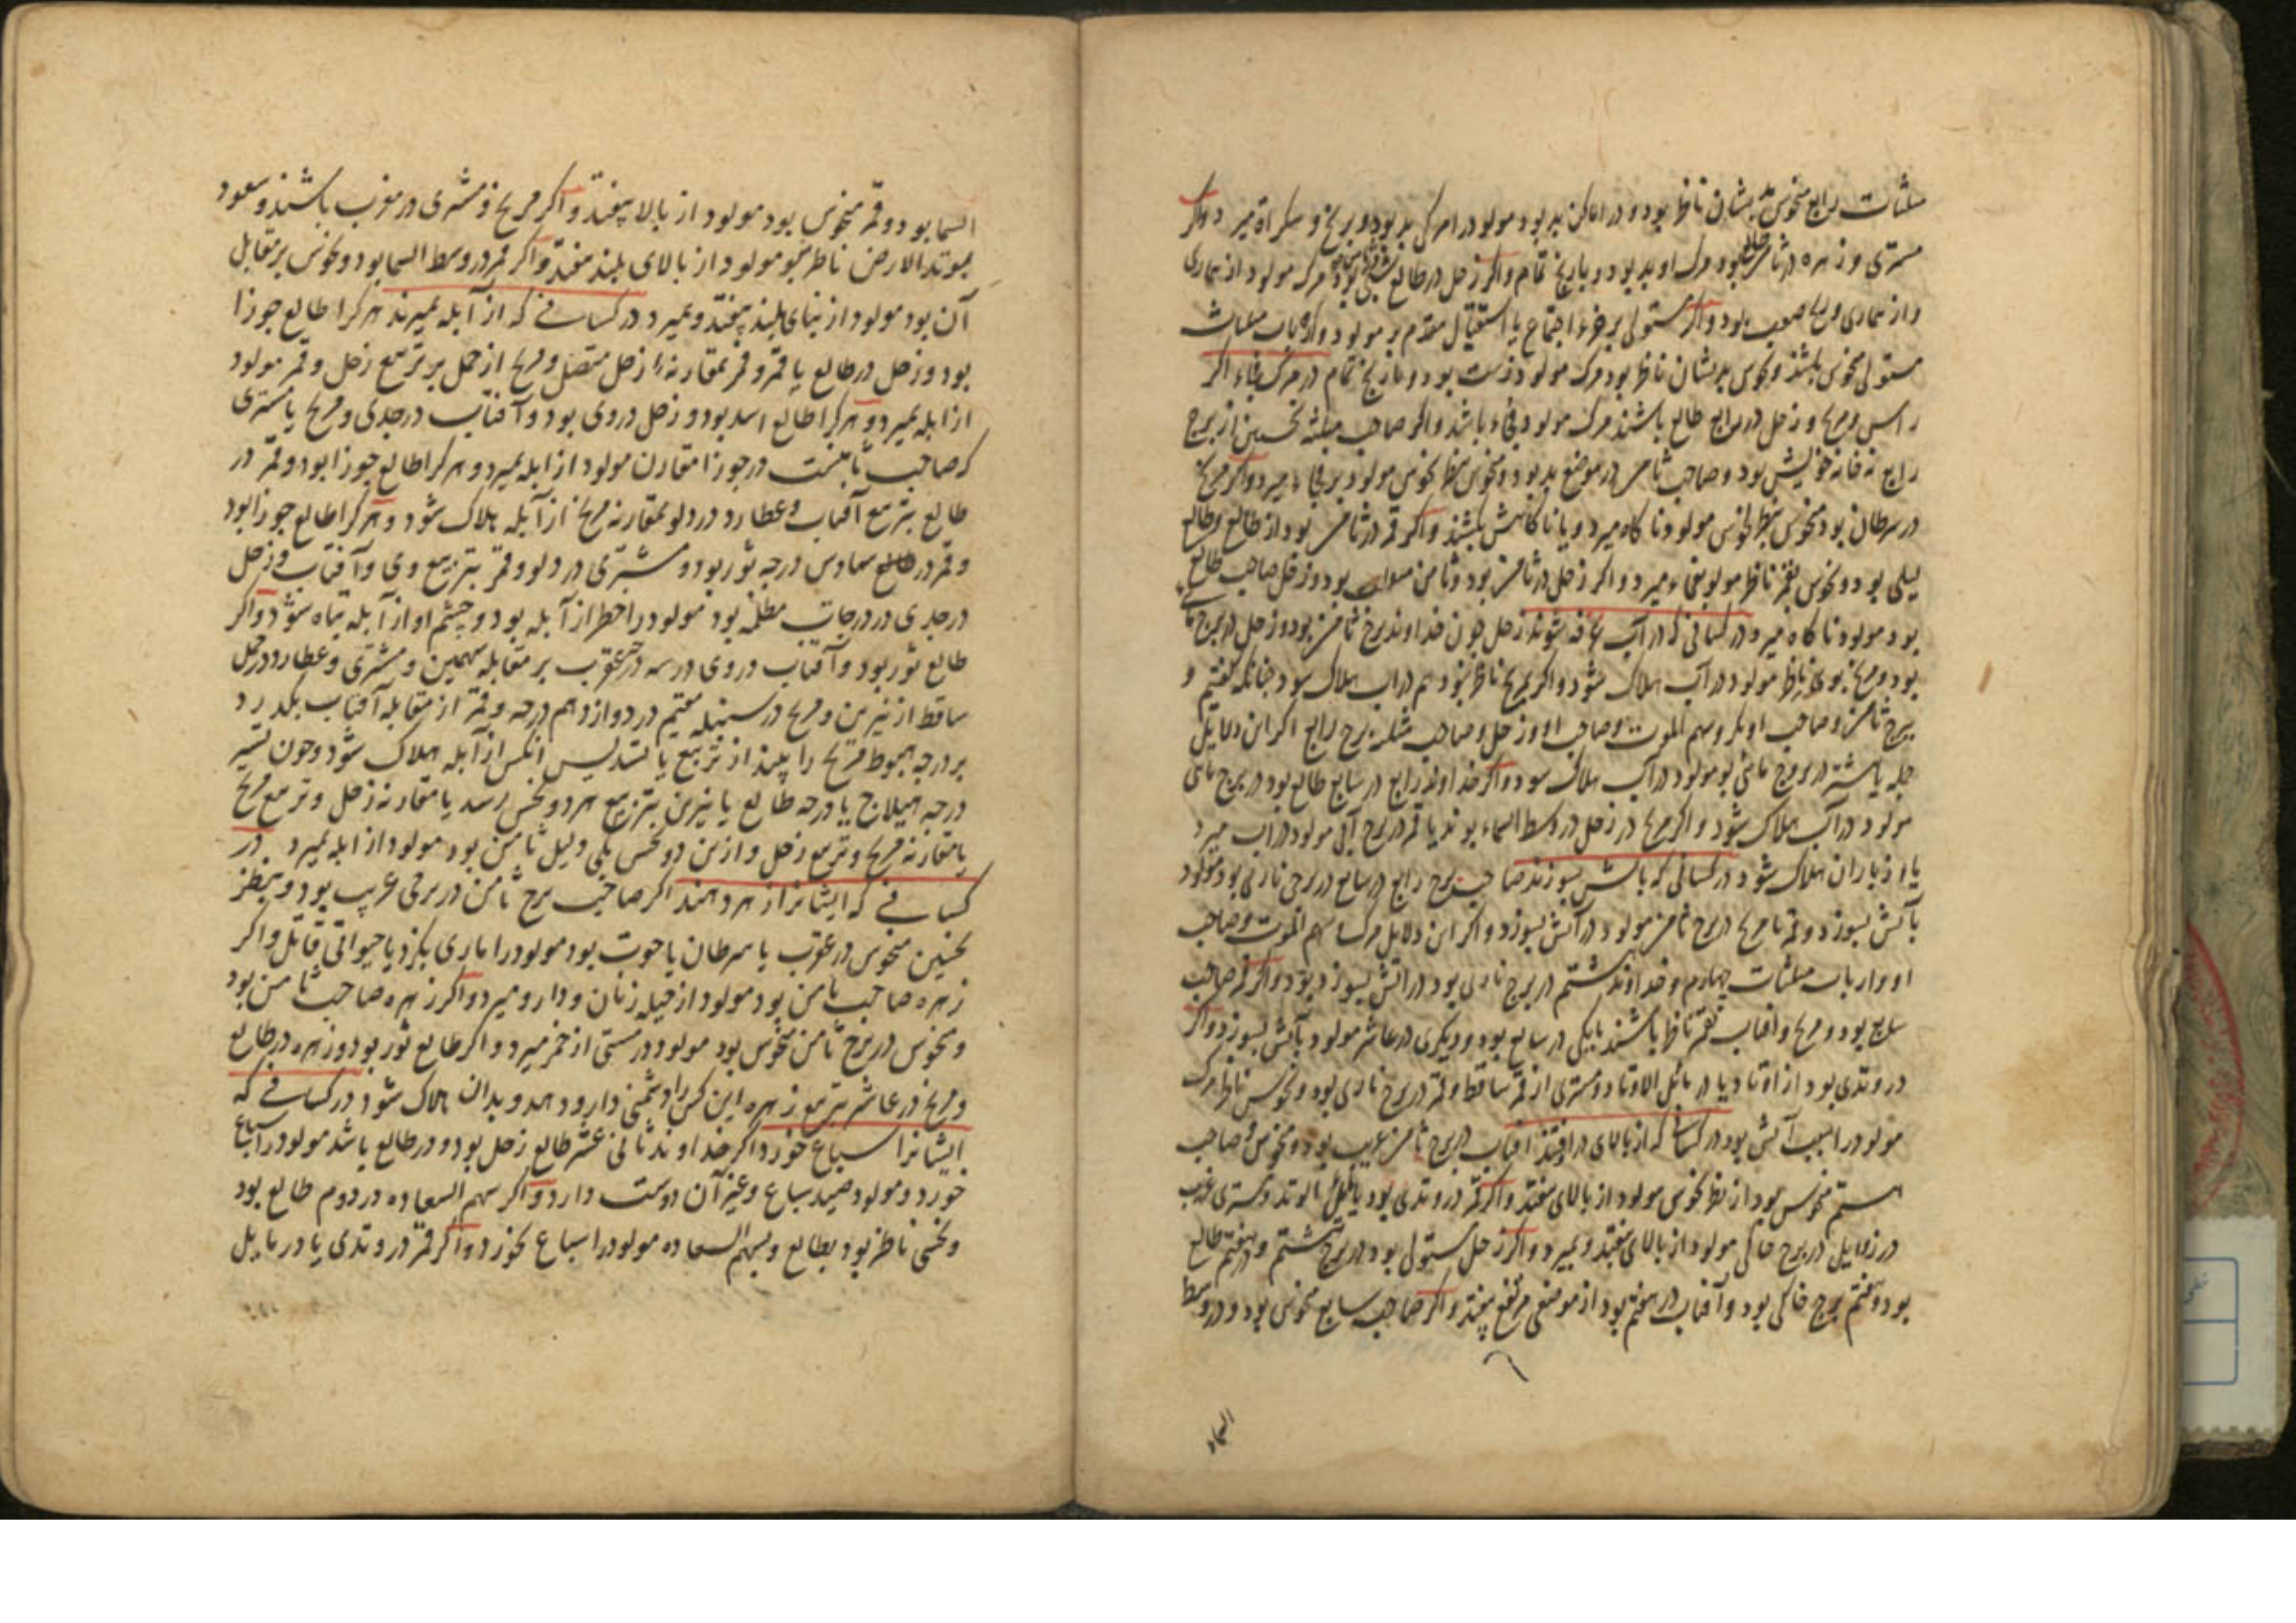 مثلثات رابع منحوس بدیشان ناظر بود و در اماکن بد بود مولود را مرکی بد بود و برنج و سکراة میرد و اکر
مشتری و زهره در ثامن طالع بود مرک او بد بود و با رنج تمام و اکر زحل در طالع بود مرک مولود از بیماری
و از بیماری و رنج صعب بود و اکر مستولی بر جزء اجتماع یا استقبال مقدم بر مولود و ارباب مثلثات
مستولی منحوس باشند و نحوس بدیشان ناظر بود مرک مولود زشت بود و با رنج تمام در مرک فجاء اکر
راس و مریخ و زحل در رابع طالع باشند مرک مولود فجاء باشد و اکر صاحب مثلثه نخستین از برج
رابع نه خانه خویش بود و صاحب ثامن در موضع بد بود و منحوس بنظر نحوس مولود بر فجاء میرد و اکر مریخ
در سرطان بود منحوس بنظر نحوس مولود ناکاه میرد و یا ناکاهش بکشند و اکر قمر در ثامن بود از طالع و طالع
لیلی بود و نحوس بقمر ناظر مولود بفجاء میرد و اکر زحل در ثامن بود و ثامن بود و زحل صاحب طالع
بود مولود ناکاه میرد در کسانی که در آب غرقه شوند زحل چون خداوند برج ثامن بود و زحل در برج
بود و مریخ بوی ناظر مولود در آب هلاک شود و اکر مریخ ناظر نبود هم در آب هلاک شود چنانکه کفتیم و
برج ثامن و صاحب او بکر و سهم الموت و صاحب او و زحل و صاحب مثلثه برج رابع اکر این دلایل
جمله یا بیشتر در بروج مائی بود مولود در آب هلاک شود و اکر خداوند رابع در سابع طالع بود در برج مائی
مولود در آب هلاک شود و اکر مریخ در زحل در وسط السماء بوند یا قمر در برج آبی مولود در آب میرد
یا از باران هلاک شود در کسانی که بآتش بسوزند صاحب برج رابع در سابع در برجی ناری بود مولود
بآتش بسوزد و قمر با مریخ در برج ثامن مولود در آتش بسوزد و اکر این دلایل مرک سهم الموت و صاحب
او و ارباب مثلثات چهارم و خداوند هشتم در برج ناری بود در آتش بسوزد و اکر قمر صاحب
سابع بود و مریخ و آفتاب بقمر ناظر باشند یا یکی در سابع بود و دیکری در عاشر مولود بآتش بسوزد و اکر
در وتدی بود از اوتاد یا در مایل الاوتاد و مشتری از قمر ساقط و قمر در برج ناری بود و نحوس ناظر مرک
مولود را سبب آتش بود در کسانی که از بالای در افتند آفتاب در برج ثامن غریب بود و منحوس و صاحب
هشتم منحوس بود از نظر نحوس مولود از بالای بیفتد و اکر قمر در وتدی بود یا مایل الوتد و مشتری غریب
در زوایلی در برج خاکی مولود از بالای بیفتد و بمیرد و اکر زحل مستولی بود در برج هشتم و در هفتم طالع
بود و هفتم برج خاکی بود و آفتاب در هفتم بود از موضعی مرتفع بیفتد و اکر صاحب سابع منحوس بود و در وسط
السما
السما بود و قمر منحوس بود مولود از بالا بیفتد و اکر مریخ و مشتری در مغرب باشند و سعود
بوتد الارض ناظر نبود مولود از بالای بلند بیفتد و اکر قمر در وسط السما بود و نحوس بر مقابل
آن بود مولود از بنای بلند بیفتد و بمیرد در کسانی که از آبله بمیرند هر کرا طالع جوزا
بود و زحل در طالع یا قمر و قمر بمقارنه از زحل متصل و مریخ از حمل بر تربیع زحل و قمر مولود
از ابله بمیرد و هر کرا طالع اسد بود و زحل در وی بود و آفتاب در جدی و مریخ یا مشتری
که صاحب ثامنست در جوزا مقارن مولود از ابله بمیرد و هر کرا طالع جوزا بود و قمر در
طالع بتربیع آفتاب و عطارد در دلو بمقارنه مریخ از آبله هلاک شود و هر کرا طالع جوزا بود
و قمر در طالع سادس درجه ثور بود و مشتری در دلو و قمر بتربیع وی و آفتاب و زحل
در جدی در درجات مظلمه بود مولود را خطر از آبله بود و چشم او از آبله تباه شود و اکر
طالع ثور بود و آفتاب در وی در سه درجه عقرب بر مقابله سهمین و مشتری و عطارد در حمل
ساقط از نیرین و مریخ در سنبله مقیم در دوازدهم درجه و قمر از مقابله آفتاب بکذرد
بر درجه هبوط مریخ را بیند از تربیع یا تسدیس آنکس از آبله هلاک شود و چون تسییر
درجه هیلاج یا درجه طالع یا نیرین بتربیع هر دو نحس رسد یا مقارنه زحل و تربیع مریخ
یا مقارنه مریخ و تربیع زحل و از این دو نحس یکی دلیل ثامن بود مولود از ابله بمیرد در
کسانی که ایشانرا زهر دهند اکر صاحب برج ثامن در برجی غریب بود و بنظر
نحسین منحوس در عقرب یا سرطان یا حوت بود مولود را ماری بکزد یا حیوانی قاتل و اکر
زهره صاحب ثامن بود مولود از حیله زنان و دارو میرد و اکر زهره صاحب ثامن بود
و منحوس در برج ثامن منحوس بود مولود در مستی از خمر میرد و اکر طالع ثور بود و زهره در طالع
و مریخ در عاشر بتربیع زهره این کس را دشمنی دارو دهد و بدان هلاک شود در کسانی که
ایشانرا سباع خورد اکر خداوند ثانی عشر طالع زحل بود و در طالع باشد مولود را سباع
خورد و مولود صید سباع و غیر آن دوست دارد و اکر سهم السعاده در دوم طالع بود
و نحسی ناظر بود بطالع و بسهم السعاده مولود را سباع بخورد و اکر قمر در وتدی یا در مایل